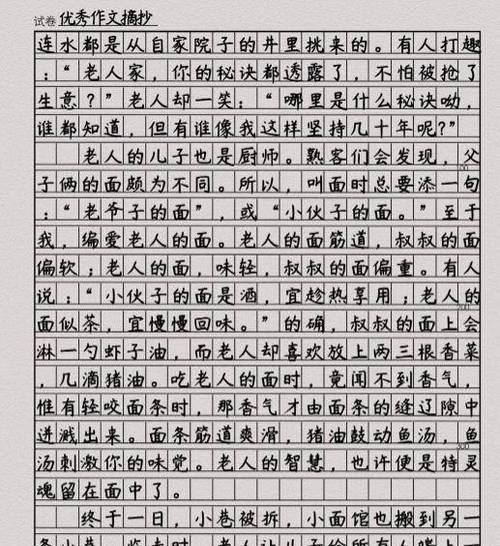 试卷 优秀作文摘抄
连水都是从自家院子的井里挑来的。有人打趣
:“老人家,你的秘诀都透露了,不怕被抢了
生意?”老人却一笑:“哪里是什么秘诀呦,
谁都知道,但有谁像我这样坚持几十年呢?”
老人的儿子也是厨师。熟客们会发现,父
100
子俩的面颇为不同。所以,叫面时总要添一句
:“老爷子的面”,或“小伙子的面。”至于
我,偏爱老人的面。老人的面筋道,叔叔的面
偏软;老人的面,味轻,叔叔的面偏重。有人
说:“小伙子的面是酒,宜趁热享用;老人的
200
面似茶,宜慢慢回味。”的确,叔叔的面上会
淋一勺虾子油,而老人却喜欢放上两三根香菜
,几滴猪油。吃老人的面时,竟闻不到香气,
惟有轻咬面条时,那香气才由面条的缝辽隙中
迸溅出来。面条筋道爽滑,猪油鼓动鱼汤,鱼
300
汤刺激你的味觉。老人的智慧,也许便是特灵
魂留在面中了。
终于一日,小巷被拆,小面馆也搬到另一